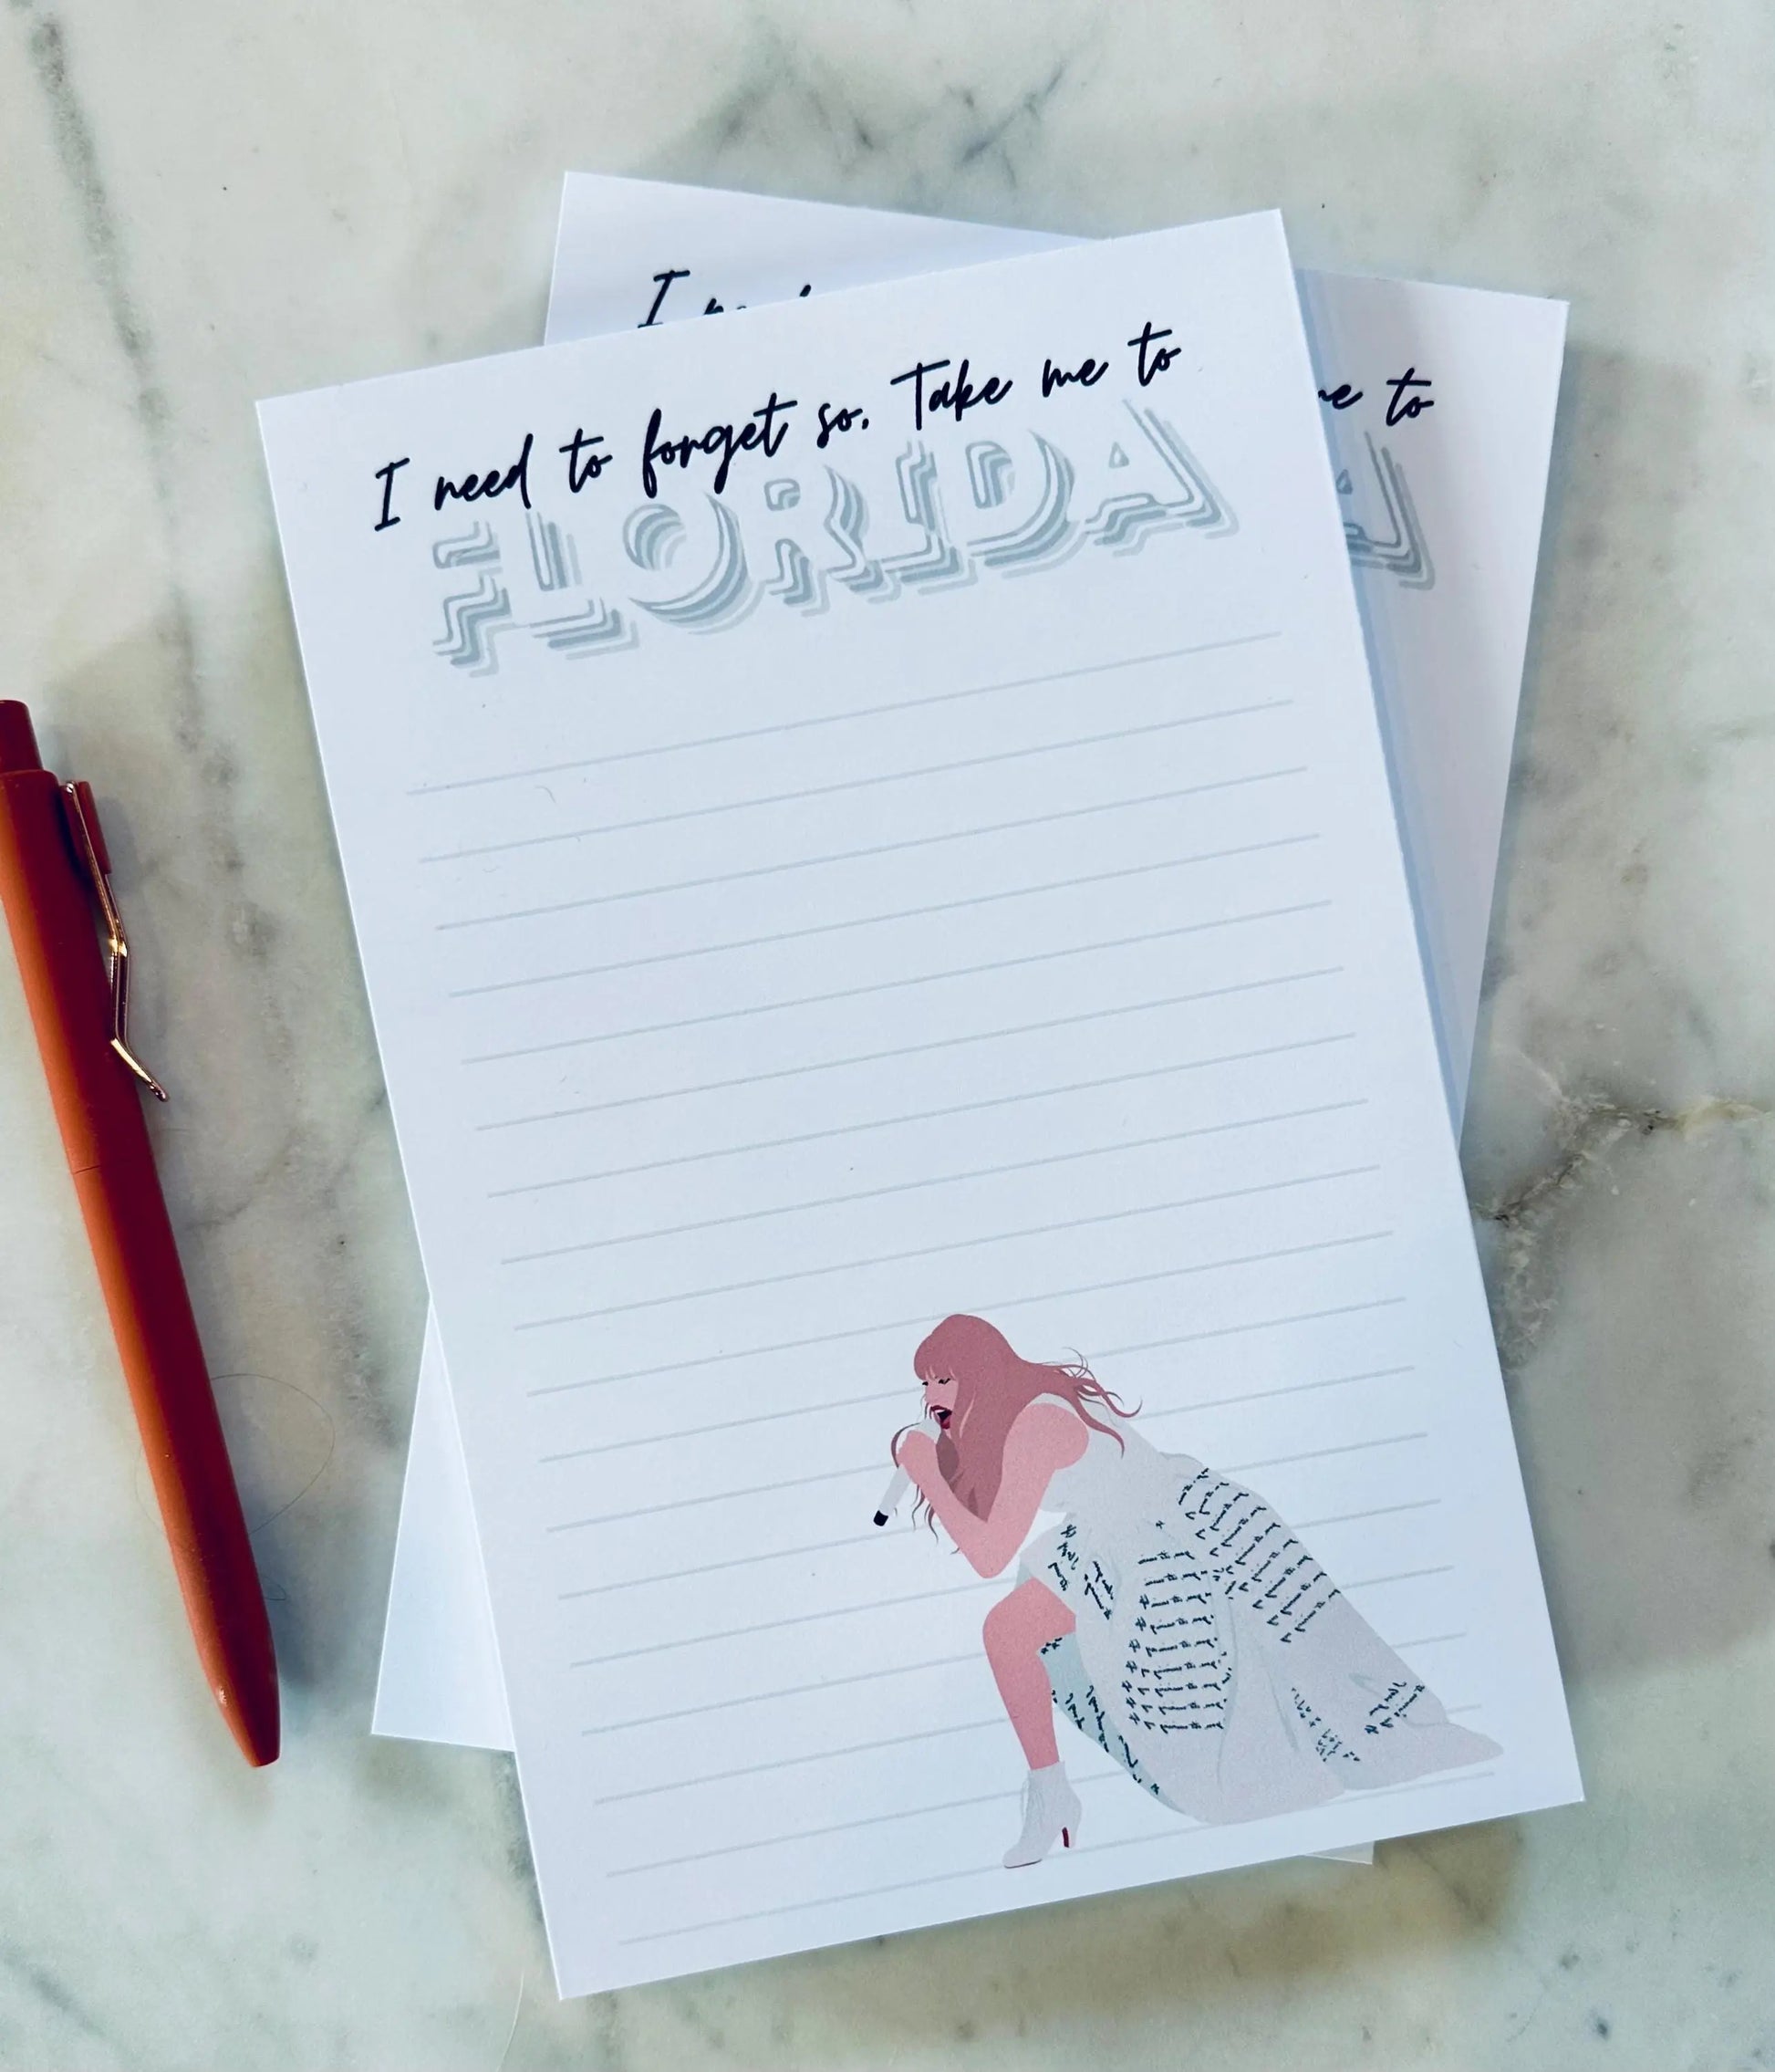 I need to forget so. Take me to
FLORIDA
I
me to
A